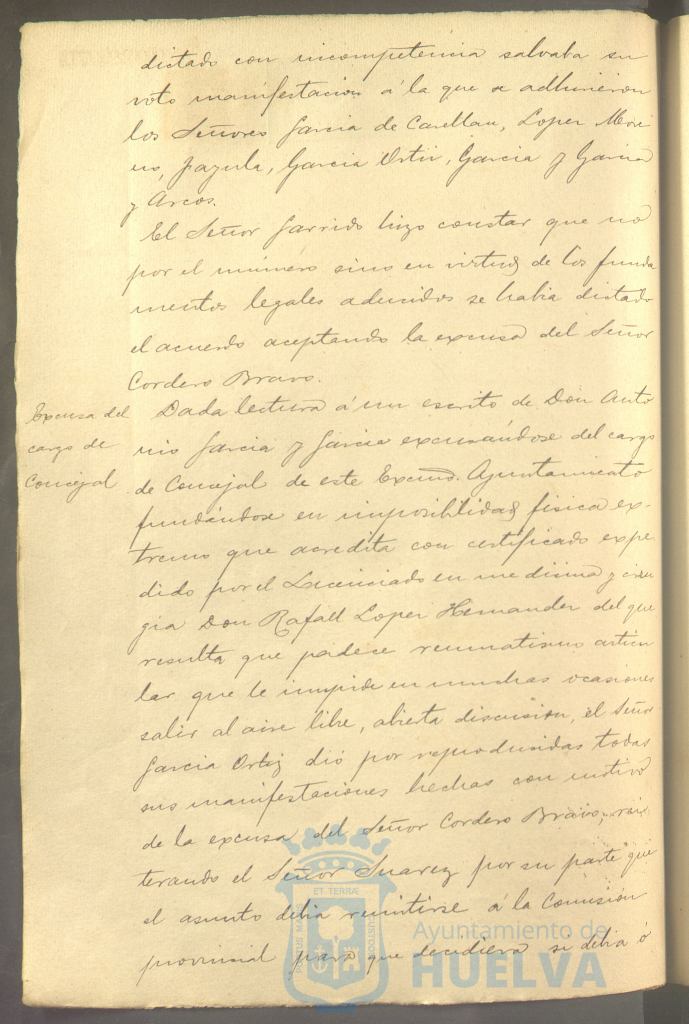 dictado con incompetencia salvaba su
voto manifestacion á la que se adhirieron
los Señores Garcia de Casellau, Lopez More
no, Jazula, Garcia Ortiz, Garcia y Garcia
y Arcos.
El Señor Garrido hizo constar que no
por el número sino en virtud de los funda
mentos legales aducidos se habia dictado
el acuerdo aceptando la excusa del Señor
Cordero Bravo.
Excusa del
cargo de
Concejal
Dada lectura á un escrito de Don Anto
nio Garcia y Garcia excusándose del cargo
de Concejal de este Excmo. Ayuntamiento
fundándose en imposibilidad física ex-
tremo que acredita con certificado expe
dido por el Licenciado en medicina y ciru
gia Don Rafael Lopez Hernandez del que
resulta que padece reumatismo articu
lar que le impide en muchas ocasiones
salir al aire libre, abierta discusion, el Señor
Garcia Ortiz dió por reproducidas todas
sus manifestaciones hechas con motivo
de la excusa del Señor Cordero Bravo, rei
terando el Señor Suarez por su parte que
el asunto debia remitirse á la Comision
provincial para que decidiera si debia ó
PORTUS MARIS ET TERRÆ CUSTODIA
Ayuntamiento de
HUELVA